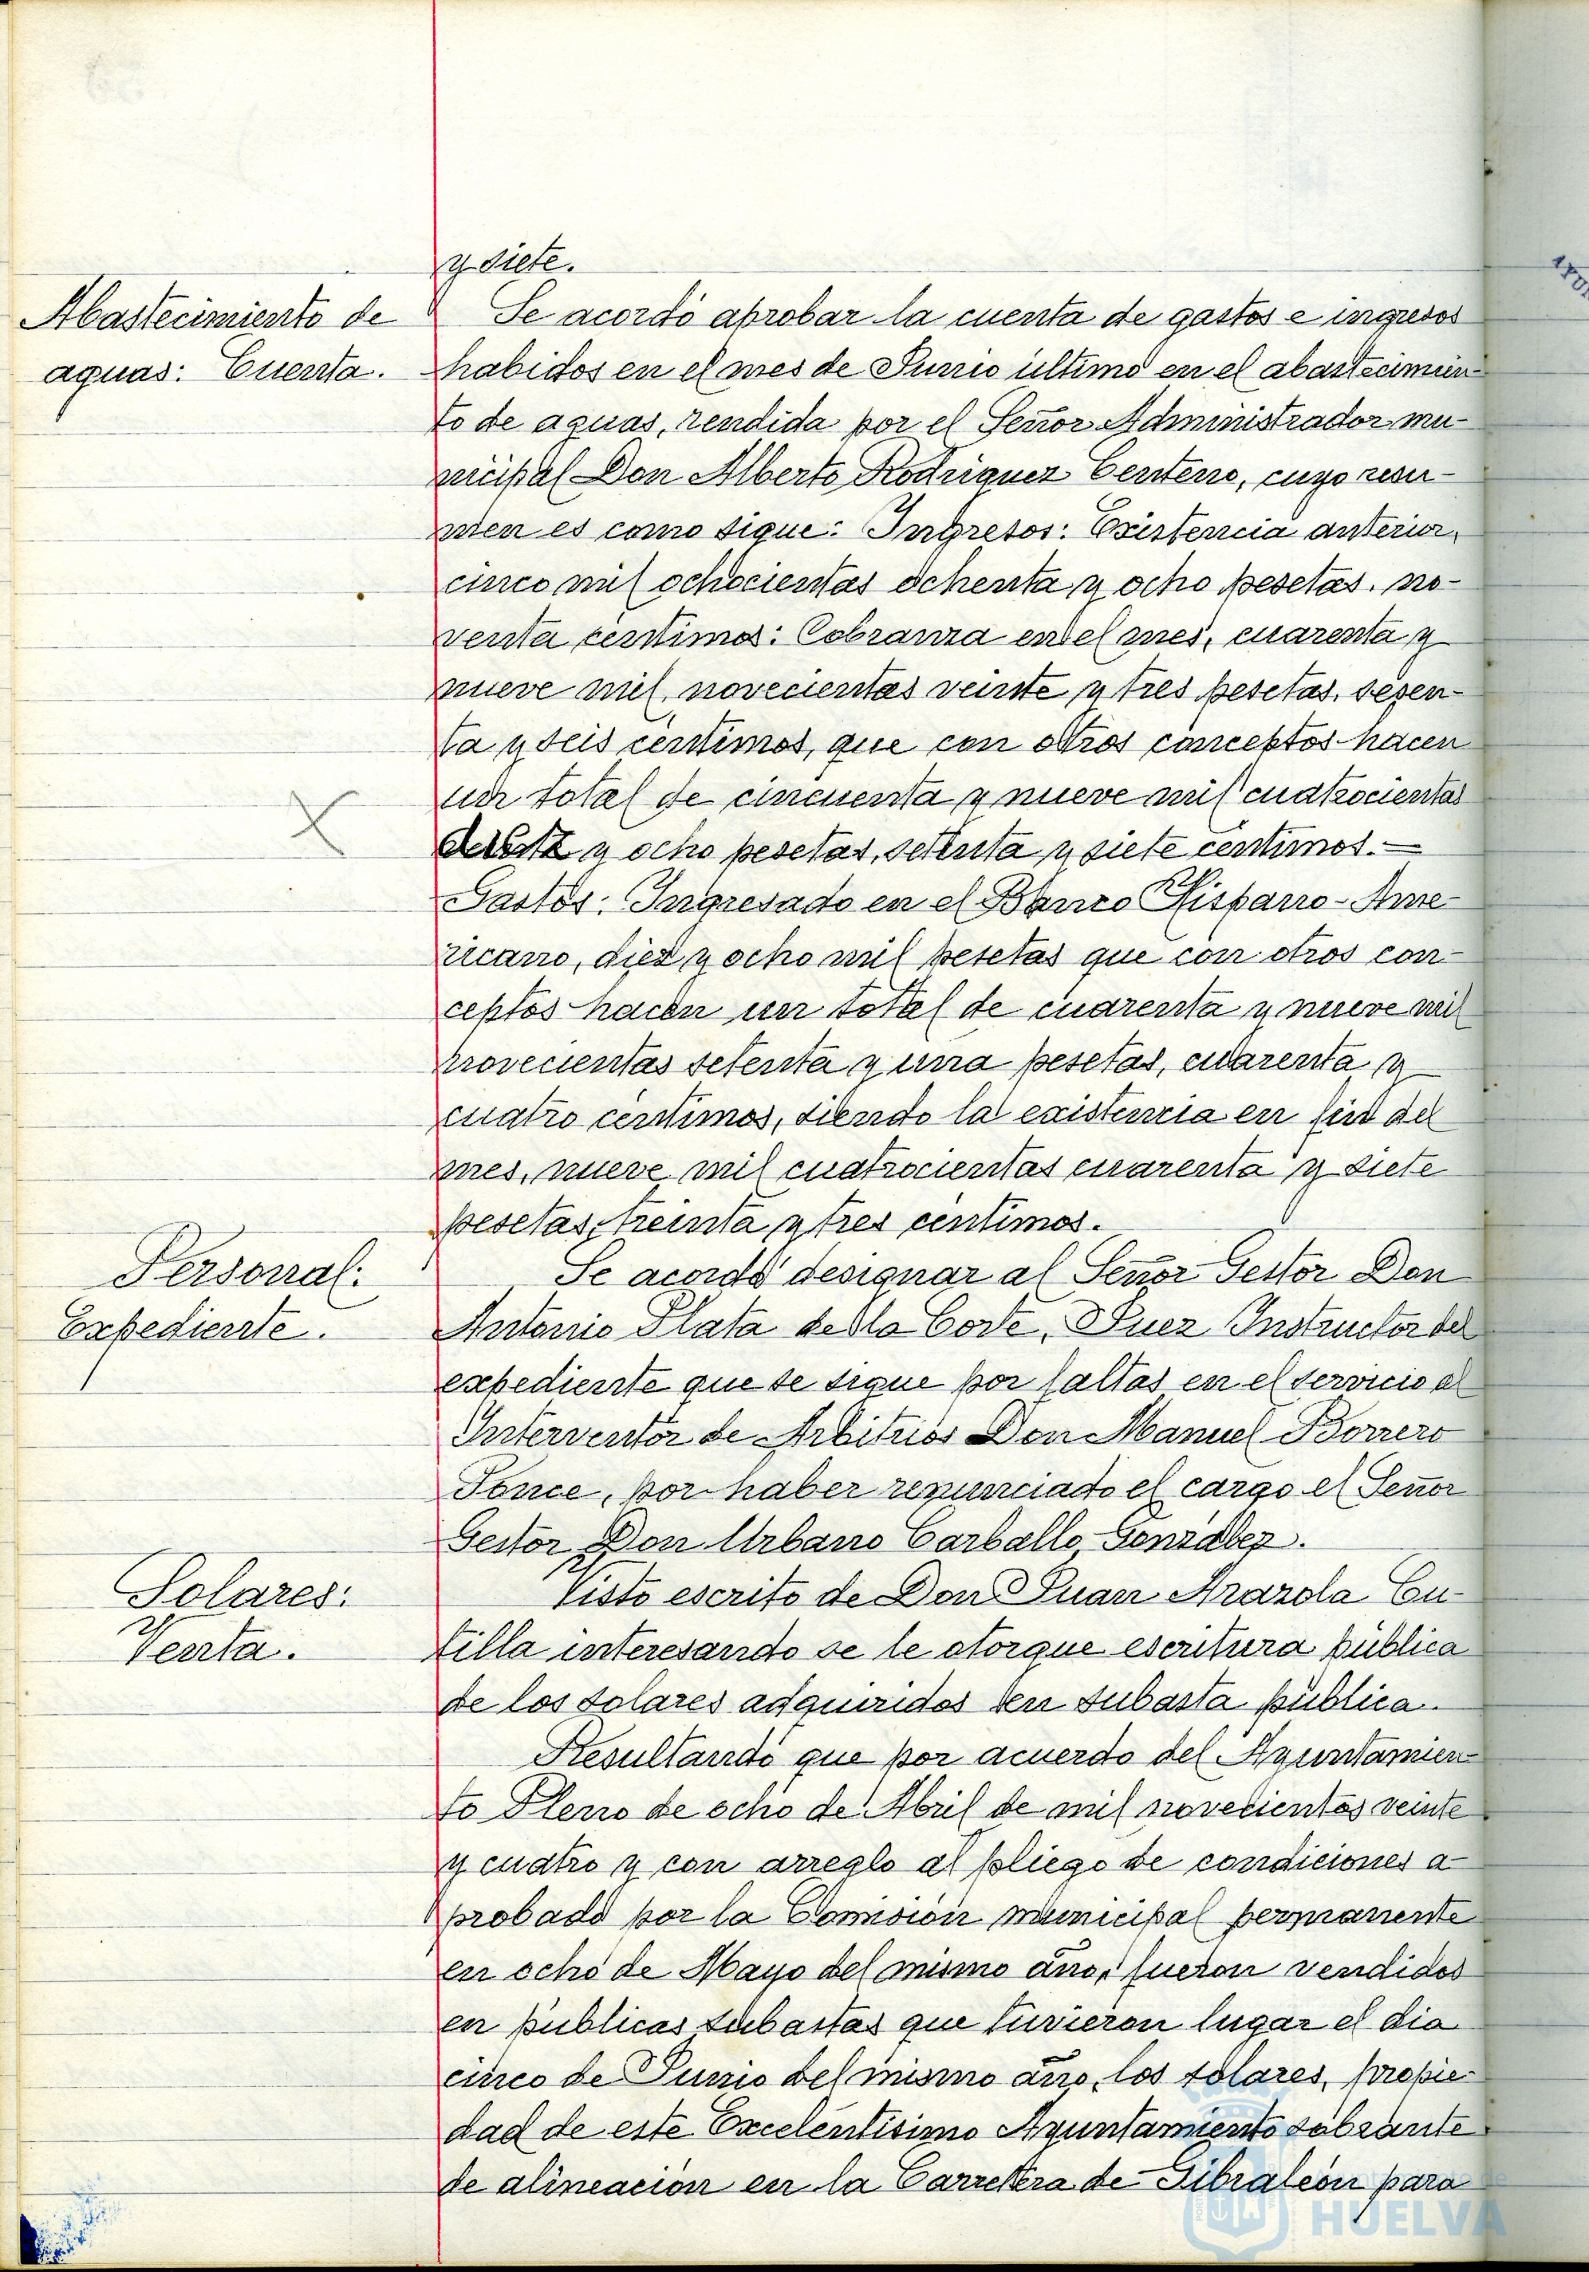 y siete.
Abastecimiento de
aguas: Cuenta.
Se acordó aprobar la cuenta de gastos e ingresos
habidos en el mes de Junio último en el abastecimien-
to de aguas, rendida por el Señor Administrador mu-
nicipal Don Alberto Rodriguez Centeno, cuyo resu-
men es como sigue: Ingresos: Existencia anterior,
cinco mil ochocientas ochenta y ocho pesetas, no-
venta centimos: Cobranza en el mes, cuarenta y
nueve mil, novecientas veinte y tres pesetas, sesen-
ta y seis centimos, que con otros conceptos hacen
un total de cincuenta y nueve mil cuatrocientas
y ocho pesetas, setenta y siete centimos.—
Gastos: Ingresado en el Banco Hispano-Ame-
ricano, diez y ocho mil pesetas que con otros con-
ceptos hacen un total de cuarenta y nueve mil
novecientas setenta y una pesetas, cuarenta y
cuatro centimos, siendo la existencia en fin del
mes, nueve mil cuatrocientas cuarenta y siete
pesetas, treinta y tres centimos.
Personal:
Expediente.
Se acordó designar al Señor Gestor Don
Antonio Plata de la Corte, Juez Instructor del
expediente que se sigue por faltas en el servicio al
Interventor de Arbitrios Don Manuel Borrero
Ponce, por haber renunciado el cargo el Señor
Gestor Don Urbano Carballo Gonzalez.
Solares:
Venta.
Visto escrito de Don Juan Arazola Cu-
tilla interesando se le otorgue escritura pública
de los solares adquiridos en subasta pública.
Resultando que por acuerdo del Ayuntamien-
to Pleno de ocho de Abril de mil novecientos veinte
y cuatro y con arreglo al pliego de condiciones a-
probado por la Comisión municipal permanente
en ocho de Mayo del mismo año, fueron vendidos
en públicas subastas que tuvieron lugar el dia
cinco de Junio del mismo año, los solares, propie-
dad de este Excelentísimo Ayuntamiento sobrante
de alineación en la Carretera de Gibraleón para
HUELVA